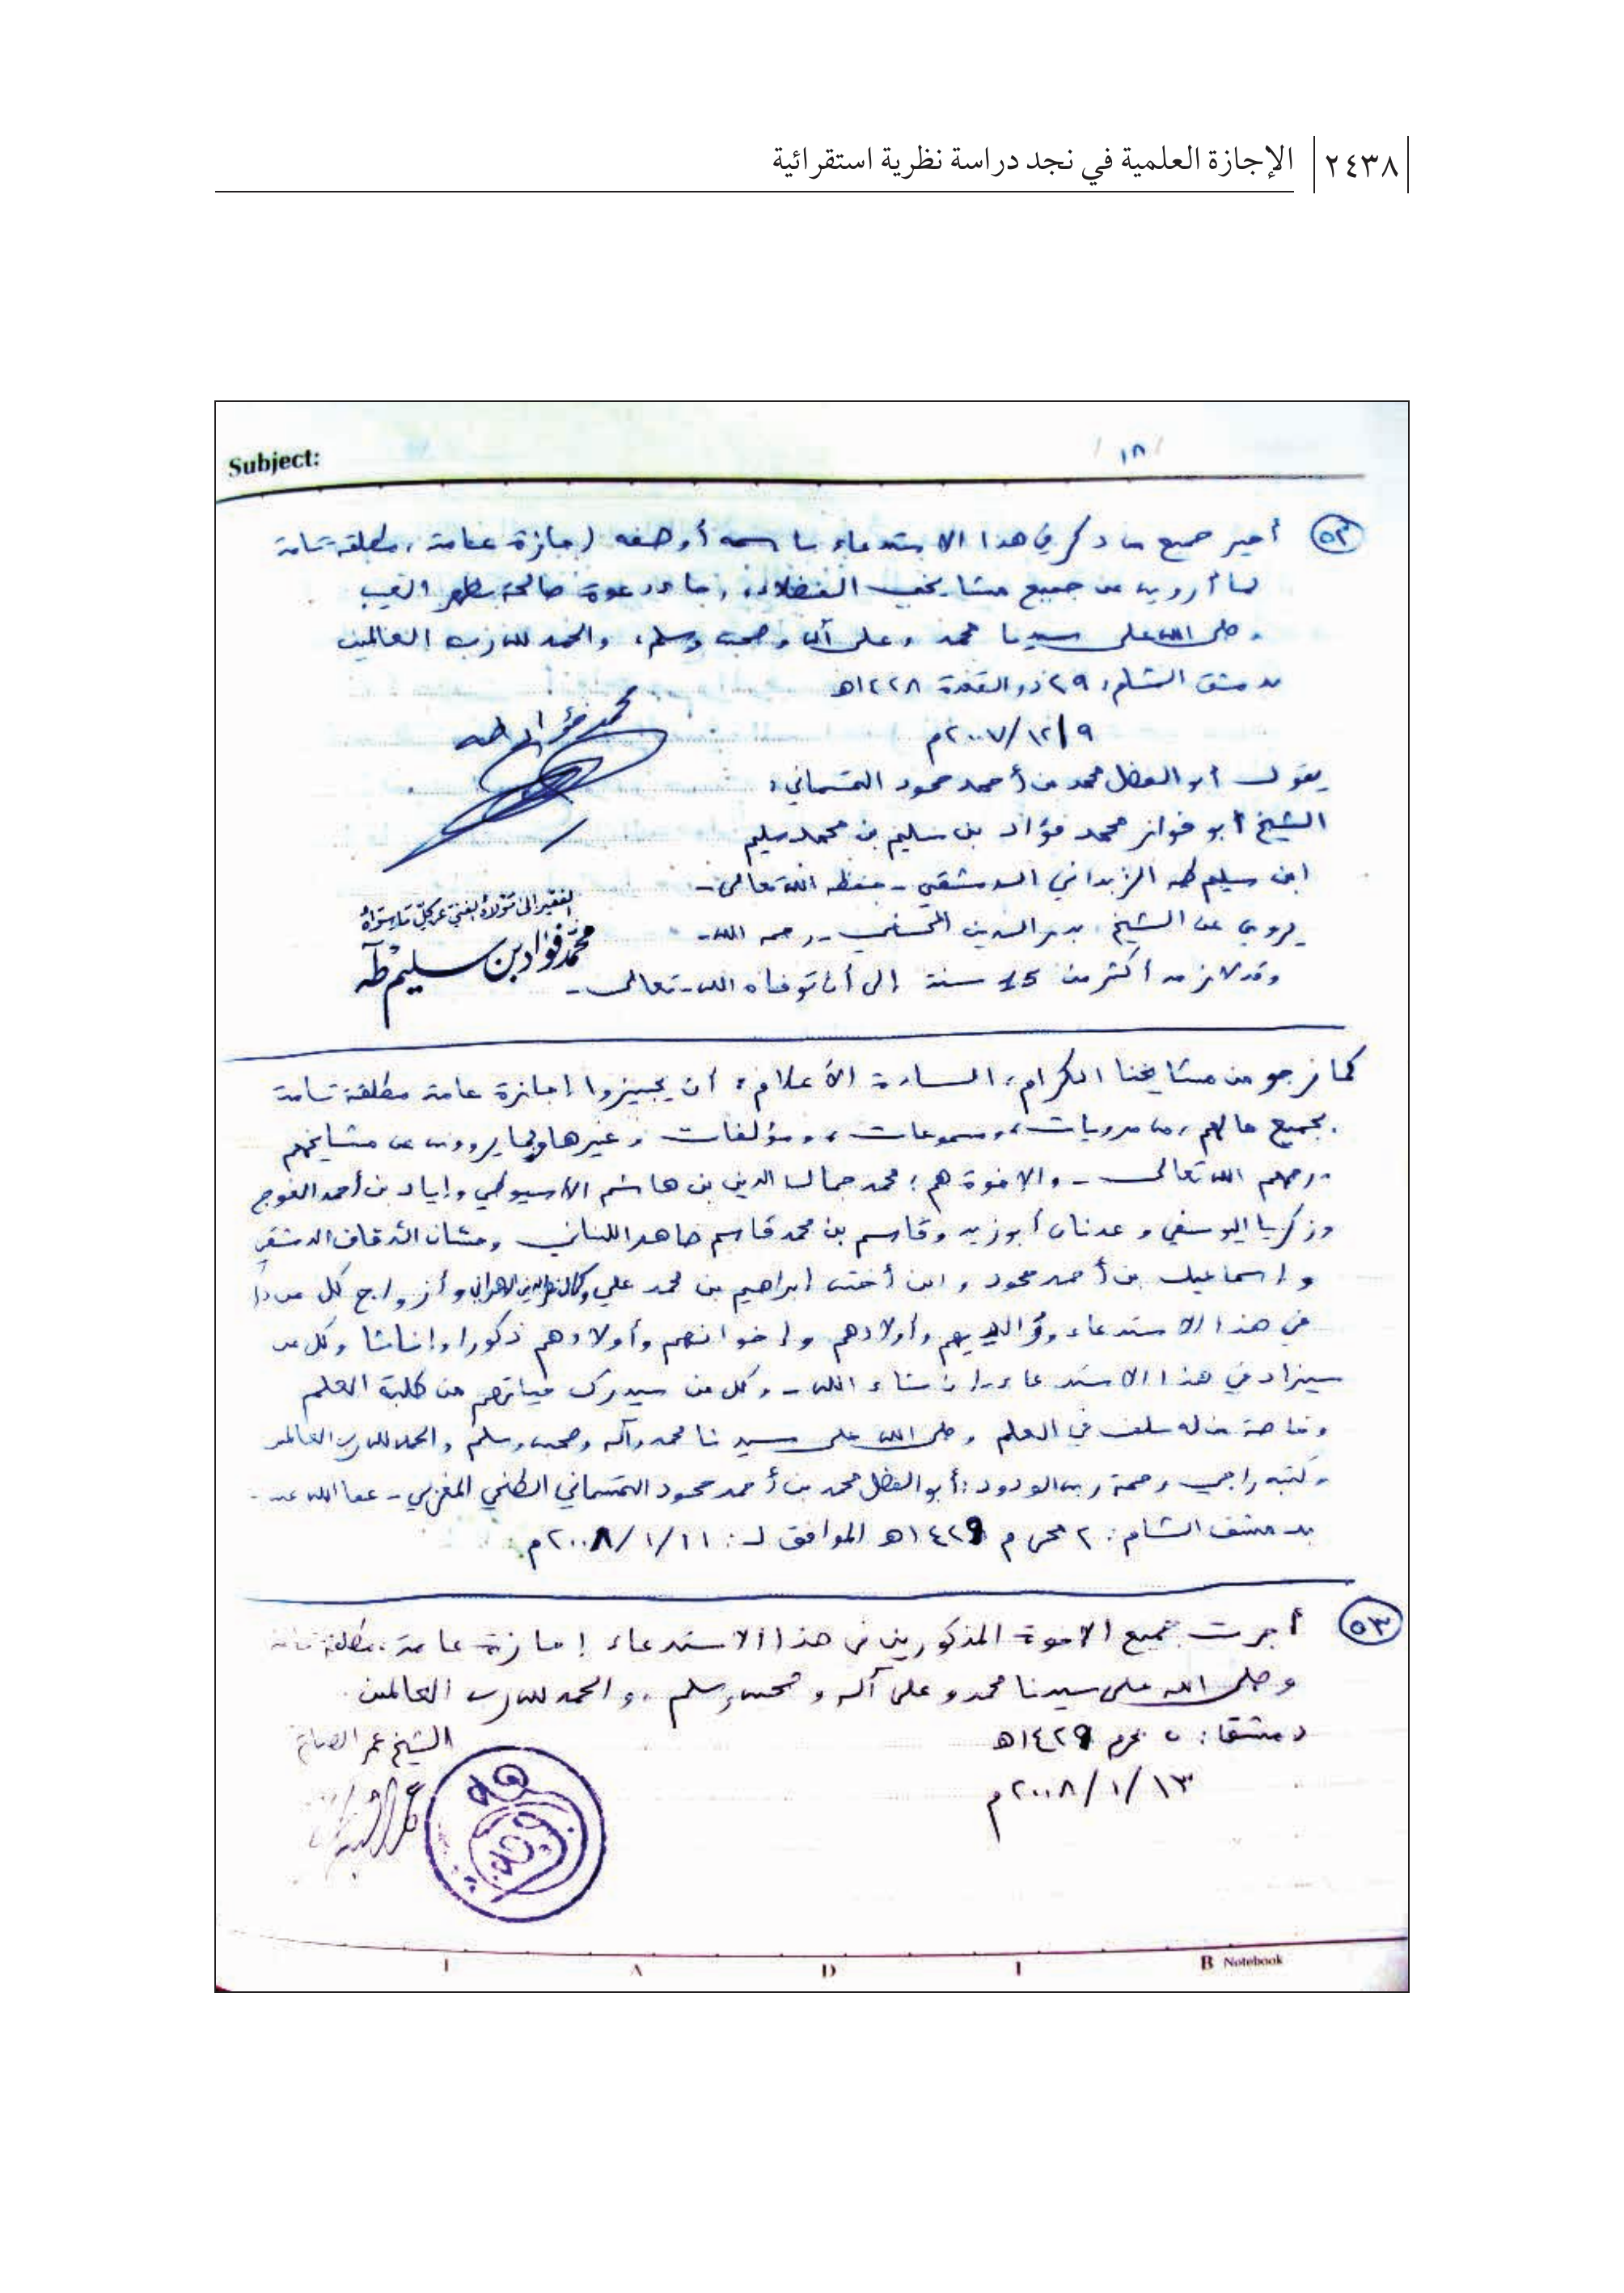 ٢٤٣٨ الإجازة العلمية في نجد دراسة نظرية استقرائية
Subject:
/ ١٨ /
٥٢ أجيز جميع ما ذكر في هذا الاستدعاء باسمه أو صفه إجازة عامة، مطلقة تامة
لما أرويه عن جميع مشايخي الفضلاء، دعوة صالحة بظهر الغيب
وصلى الله على سيدنا محمد وعلى آله وصحبه وسلم، والحمد لله رب العالمين
دمشق الشام: ٢٩ ذو القعدة ١٤٢٨هـ
٢٠٠٧/١٢/٩م
محمد فؤاد طه
يقول أبو الفضل محمد بن أحمد محمود التمسماني:
الشيخ أبو فواز محمد فؤاد بن سليم بن محمد سليم
ابن سليم طه الزبداني الدمشقي - حفظه الله تعالى -
يروي عن الشيخ بدر الدين الحسني - رحمه الله -
وقد لازمه أكثر من 15 سنة إلى أن توفاه الله - تعالى -
الفقير إلى مولاه الغني عن كل ما سواه
محمد فؤاد بن سليم طه
كما نرجو من مشايخنا الكرام، السادة الأعلام: أن يجيزوا إجازة عامة مطلقة تامة
بجميع ما لهم من مرويات، ومسموعات، ومؤلفات وغيرها وبما يروونه عن مشايخهم
- رحمهم الله تعالى - والإخوة هم: محمد جمال الدين بن هاشم الأسيوطي وإياد بن أحمد الغوج
وزكريا اليوسفي وعدنان أبو زيد وقاسم بن محمد قاسم ضاهر اللبناني الدمشقي
وإسماعيل بن أحمد محمود وابن أختي إبراهيم بن محمد علي وأزواج كل من
في هذا الاستدعاء ووالديهم وأولادهم وإخوانهم وأولادهم ذكورا وإناثا وكل من
سيزاد في هذا الاستدعاء - إن شاء الله - وكل من سيدرك حياتهم من طلبة العلم
وخاصة من له سلف في العلم وصلى الله على سيدنا محمد وآله وصحبه وسلم والحمد لله رب العالمين
وكتبه راجي رحمة ربه الودود: أبو الفضل محمد بن أحمد محمود التمسماني الطنجي المغربي - عفا الله عنه -
بدمشق الشام: ٢ محرم ١٤٢٩هـ الموافق لـ: ٢٠٠٨/١/١١م
٥٣ أجزت جميع الإخوة المذكورين في هذا الاستدعاء إجازة عامة، مطلقة تامة
وصلى الله على سيدنا محمد وعلى آله وصحبه وسلم، والحمد لله رب العالمين
دمشق: ٥ محرم ١٤٢٩هـ
٢٠٠٨/١/١٣م
الشيخ عمر
I A D I B Notebook